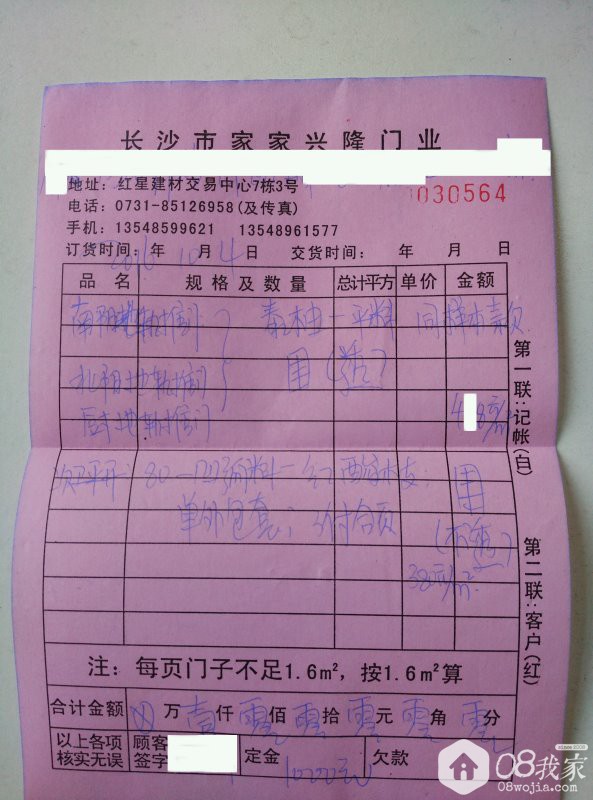 长沙市家家兴隆门业
地址：红星建材交易中心7栋3号
030564
电话：0731-85126958(及传真)
手机：13548599621 13548961577
订货时间：2016年10月4日 交货时间： 年 月 日
品名 规格及数量 总计平方 单价 金额
南阳地轴推门 泰柚一平料 同样本款
北阳地轴推门 田(透)
厨房地轴推门
次卫平开
单外包套；
田
380元/m²
注：每页门子不足1.6m²，按1.6m²算
合计金额 万 壹仟 零佰 零拾 零元 零角 零分
以上各项核实无误 顾客签字 定金 1000元 欠款
第一联：记帐(白)
第二联：客户(红)
08我家
08wojia.com